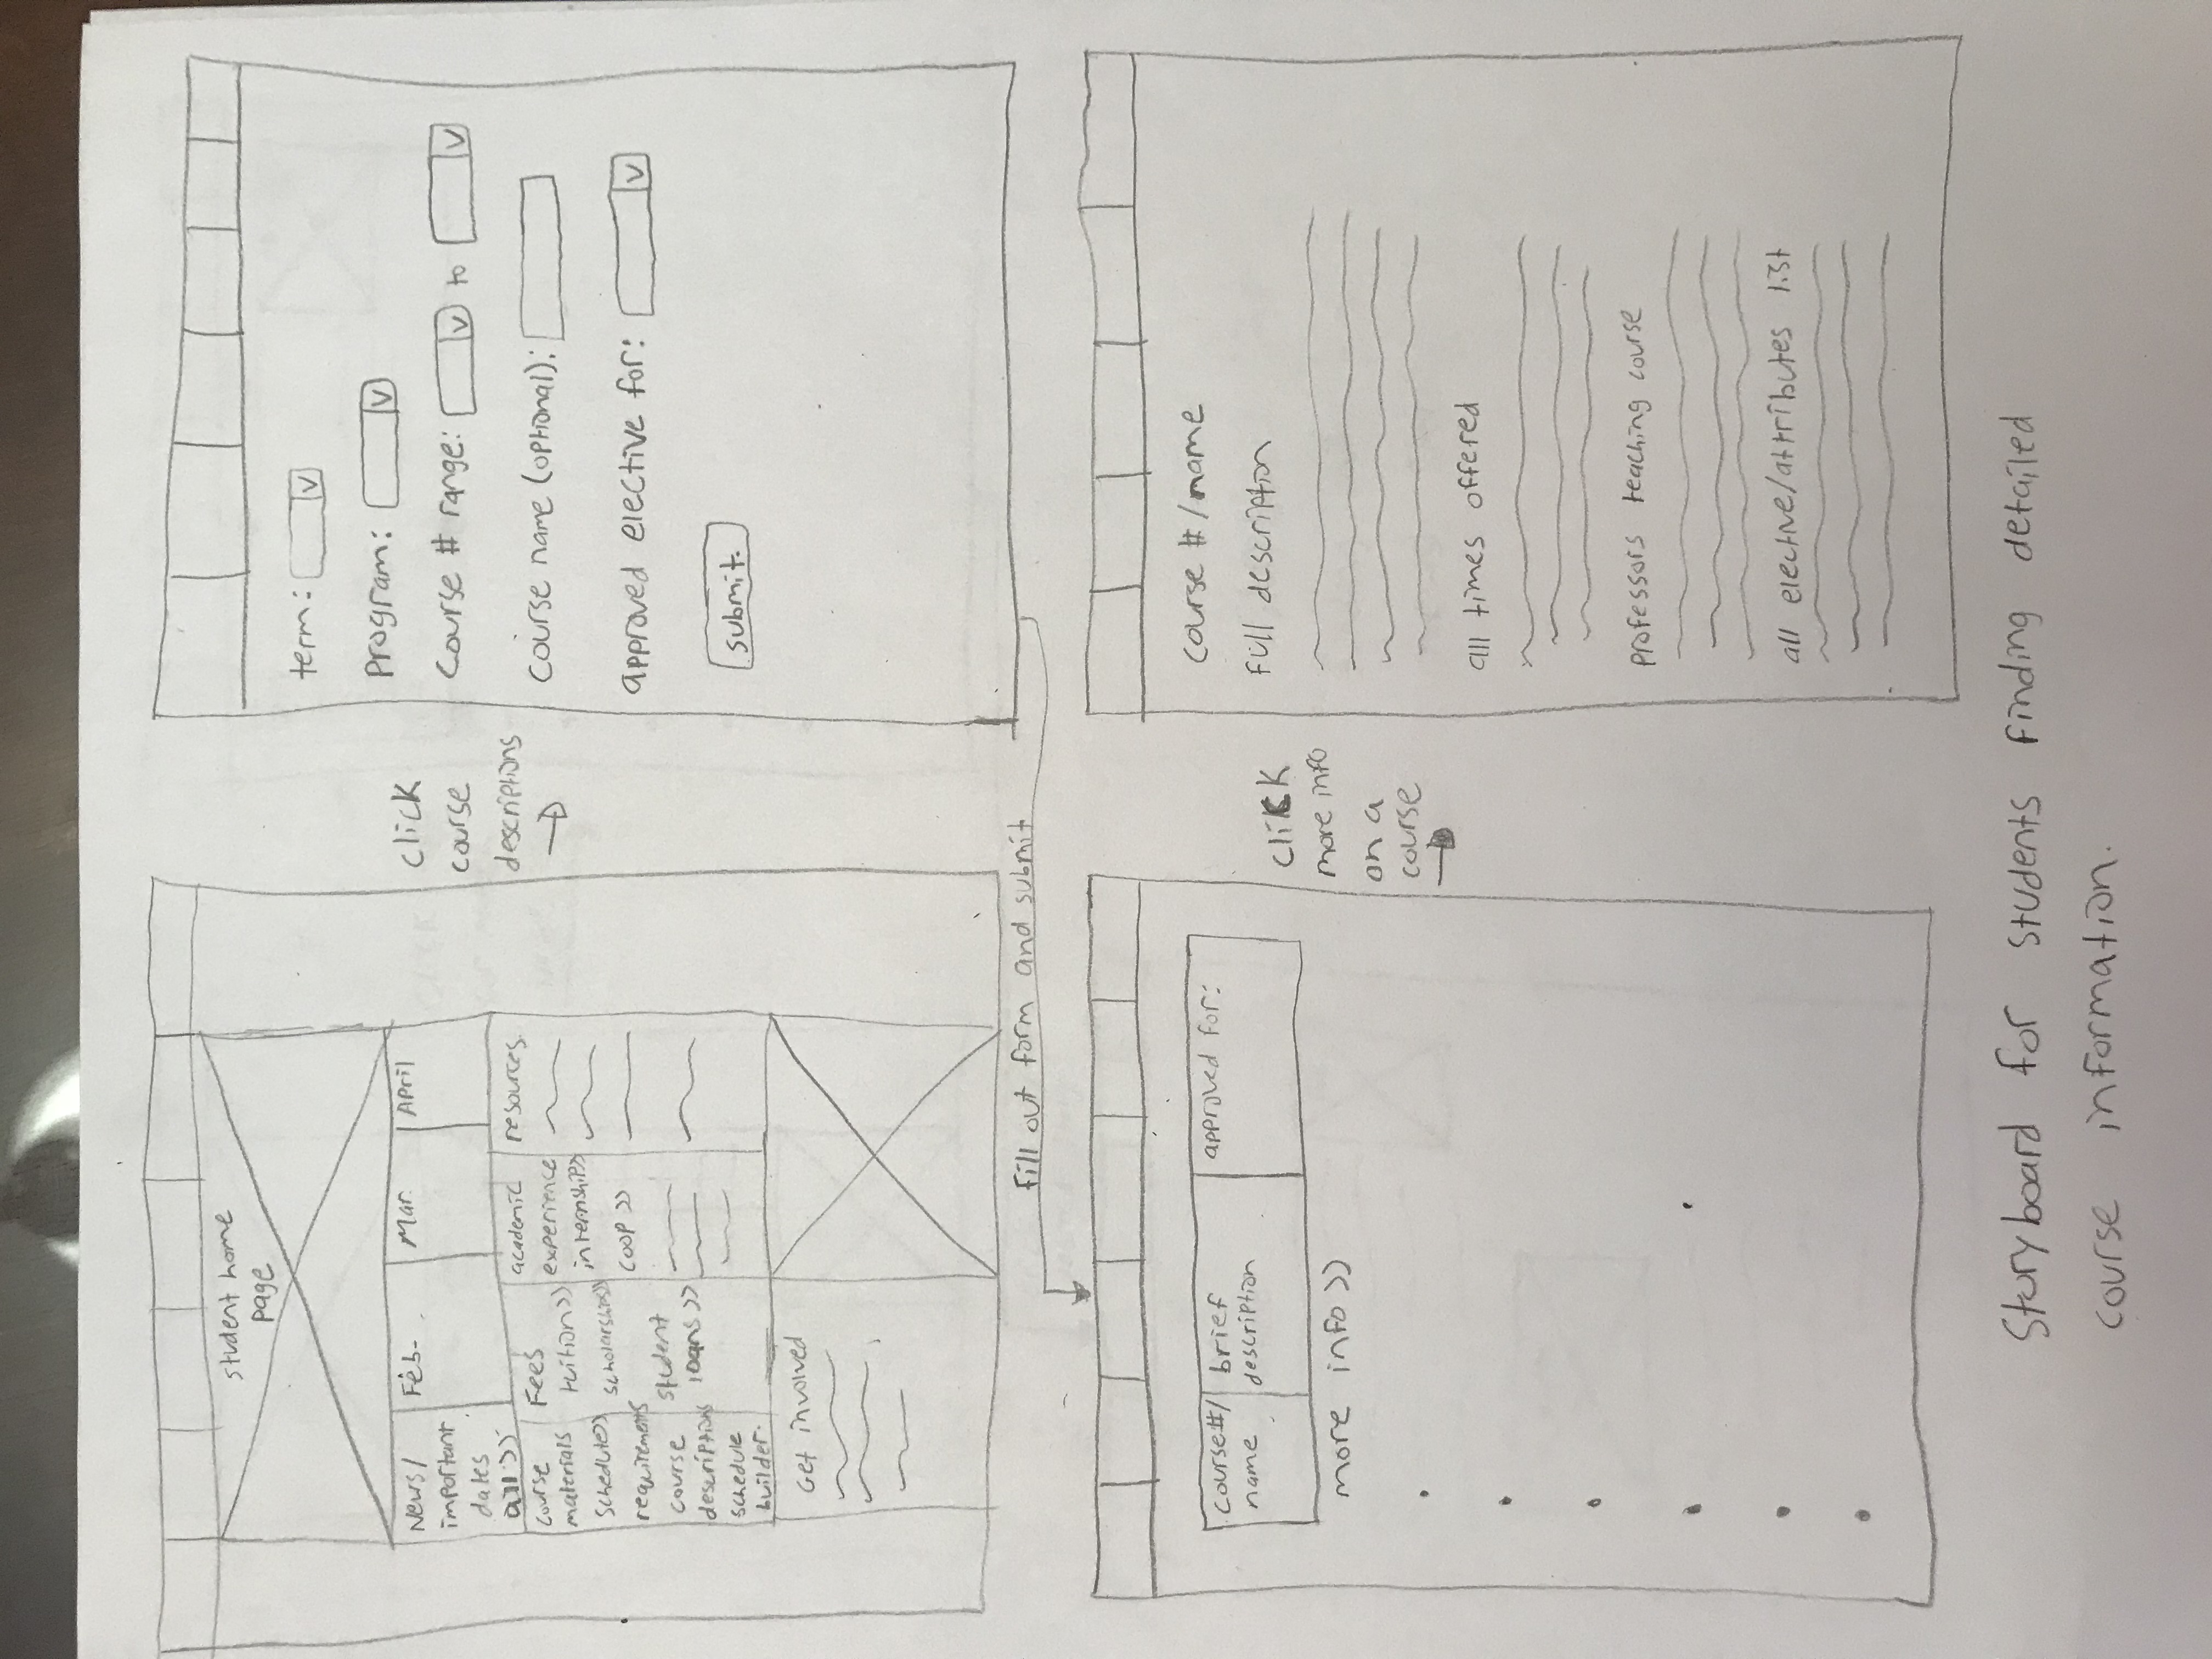 student home
page
News/
important
dates
all >>
Feb.
Mar.
April
course
materials
schedule>>
requirements
course
descriptions
schedule
builder.
Fees
tuition>>
scholarships>>
student
loans >>
academic
experience
internship>>
coop >>
resources.
Get involved
click
course
descriptions
term:
v
program:
v
course # range:
v
to
v
course name (optional):
approved elective for:
v
submit.
fill out form and submit
course#/
name
brief
description
approved for:
more info >>
click
more info
on a
course
course #/name
full description
all times offered
professors teaching course
all elective/attributes list
Storyboard for students finding detailed
course information.